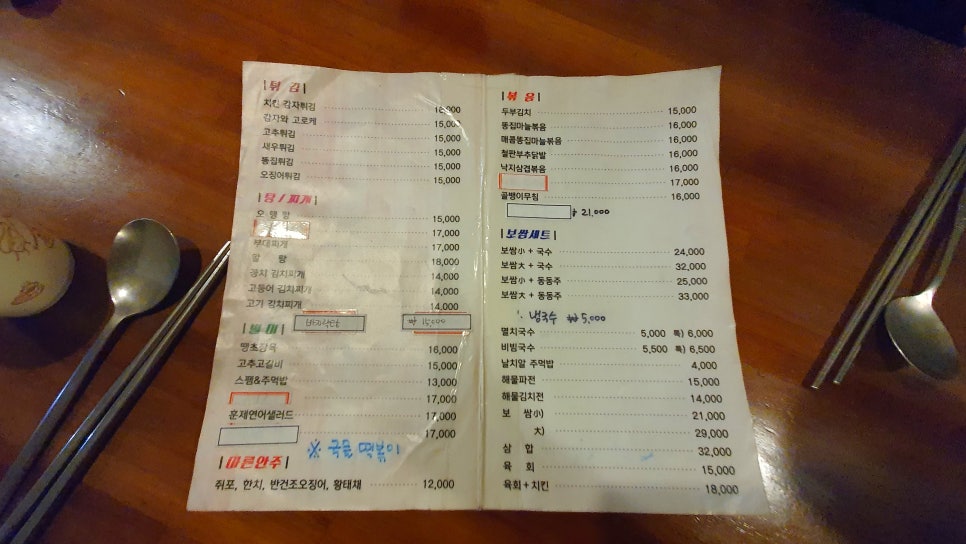 |튀 김|
치킨 감자튀김 16,000
감자와 고로케 15,000
고추튀김 15,000
새우튀김 15,000
똥집튀김 15,000
오징어튀김 15,000
|탕 / 찌개|
오 뎅 탕 15,000
17,000
부대찌개 17,000
알 탕 18,000
꽁치 김치찌개 14,000
고등어 김치찌개 14,000
고기 김치찌개 14,000
바지락탕 ₩ 15,000
|별 미|
땡초제육 16,000
고추고갈비 15,000
스팸&주먹밥 13,000
17,000
훈제연어샐러드 17,000
17,000
※ 국물 떡볶이
|마른안주|
쥐포, 한치, 반건조오징어, 황태채 12,000
|볶 음|
두부김치 15,000
똥집마늘볶음 16,000
매콤똥집마늘볶음 16,000
철판부추닭발 16,000
낙지삼겹볶음 16,000
17,000
골뱅이무침 16,000
₩ 21,000
|보쌈세트|
보쌈小 + 국수 24,000
보쌈大 + 국수 32,000
보쌈小 + 동동주 25,000
보쌈大 + 동동주 33,000
냉국수 ₩ 5,000
멸치국수 5,000 특) 6,000
비빔국수 5,500 특) 6,500
날치알 주먹밥 4,000
해물파전 15,000
해물김치전 14,000
보 쌈 小) 21,000
大) 29,000
삼 합 32,000
육 회 15,000
육회 + 치킨 18,000